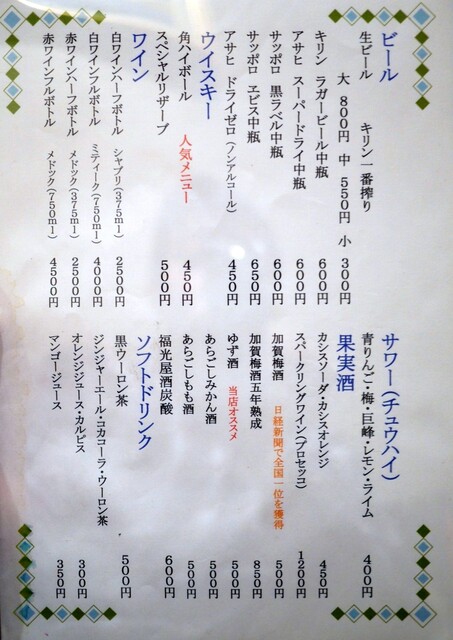 ビール
生ビール キリン一番搾り
大 800円 中 550円 小 300円
キリン ラガービール中瓶 600円
アサヒ スーパードライ中瓶 600円
サッポロ 黒ラベル中瓶 600円
サッポロ エビス中瓶 650円
アサヒ ドライゼロ(ノンアルコール) 450円
ウイスキー
角ハイボール 人気メニュー 450円
スペシャルリザーブ 500円
ワイン
白ワインハーフボトル シャブリ(375ml) 2500円
白ワインフルボトル ミティーク(750ml) 4000円
赤ワインハーフボトル メドック(375ml) 2500円
赤ワインフルボトル メドック(750ml) 4500円
サワー(チュウハイ)
青りんご・梅・巨峰・レモン・ライム 400円
果実酒
カシスソーダ・カシスオレンジ 450円
スパークリングワイン(プロセッコ) 1200円
加賀梅酒 日経新聞で全国一位を獲得 500円
加賀梅酒五年熟成 850円
ゆず酒 当店オススメ 500円
あらごしみかん酒 500円
あらごしもも酒 500円
福光屋酒炭酸 600円
ソフトドリンク
黒ウーロン茶 500円
ジンジャーエール・コカコーラ・ウーロン茶
オレンジジュース・カルピス 300円
マンゴージュース 350円